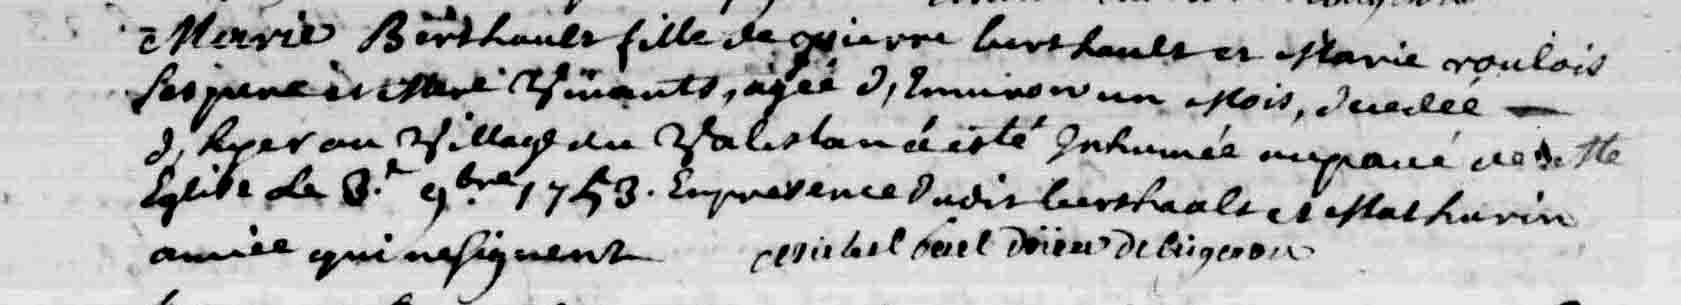 Marie Berthault fille de pierre berthault et Marie roulois
ses pere et Mere Vivants, agée d, Environ un Mois, decedée —
d, hyer au Village du a esté Inhumée au pavé de cette
Eglise Le 8.e 9.bre 1753. En presence dudit berthault et Mathurin
qui ne signent